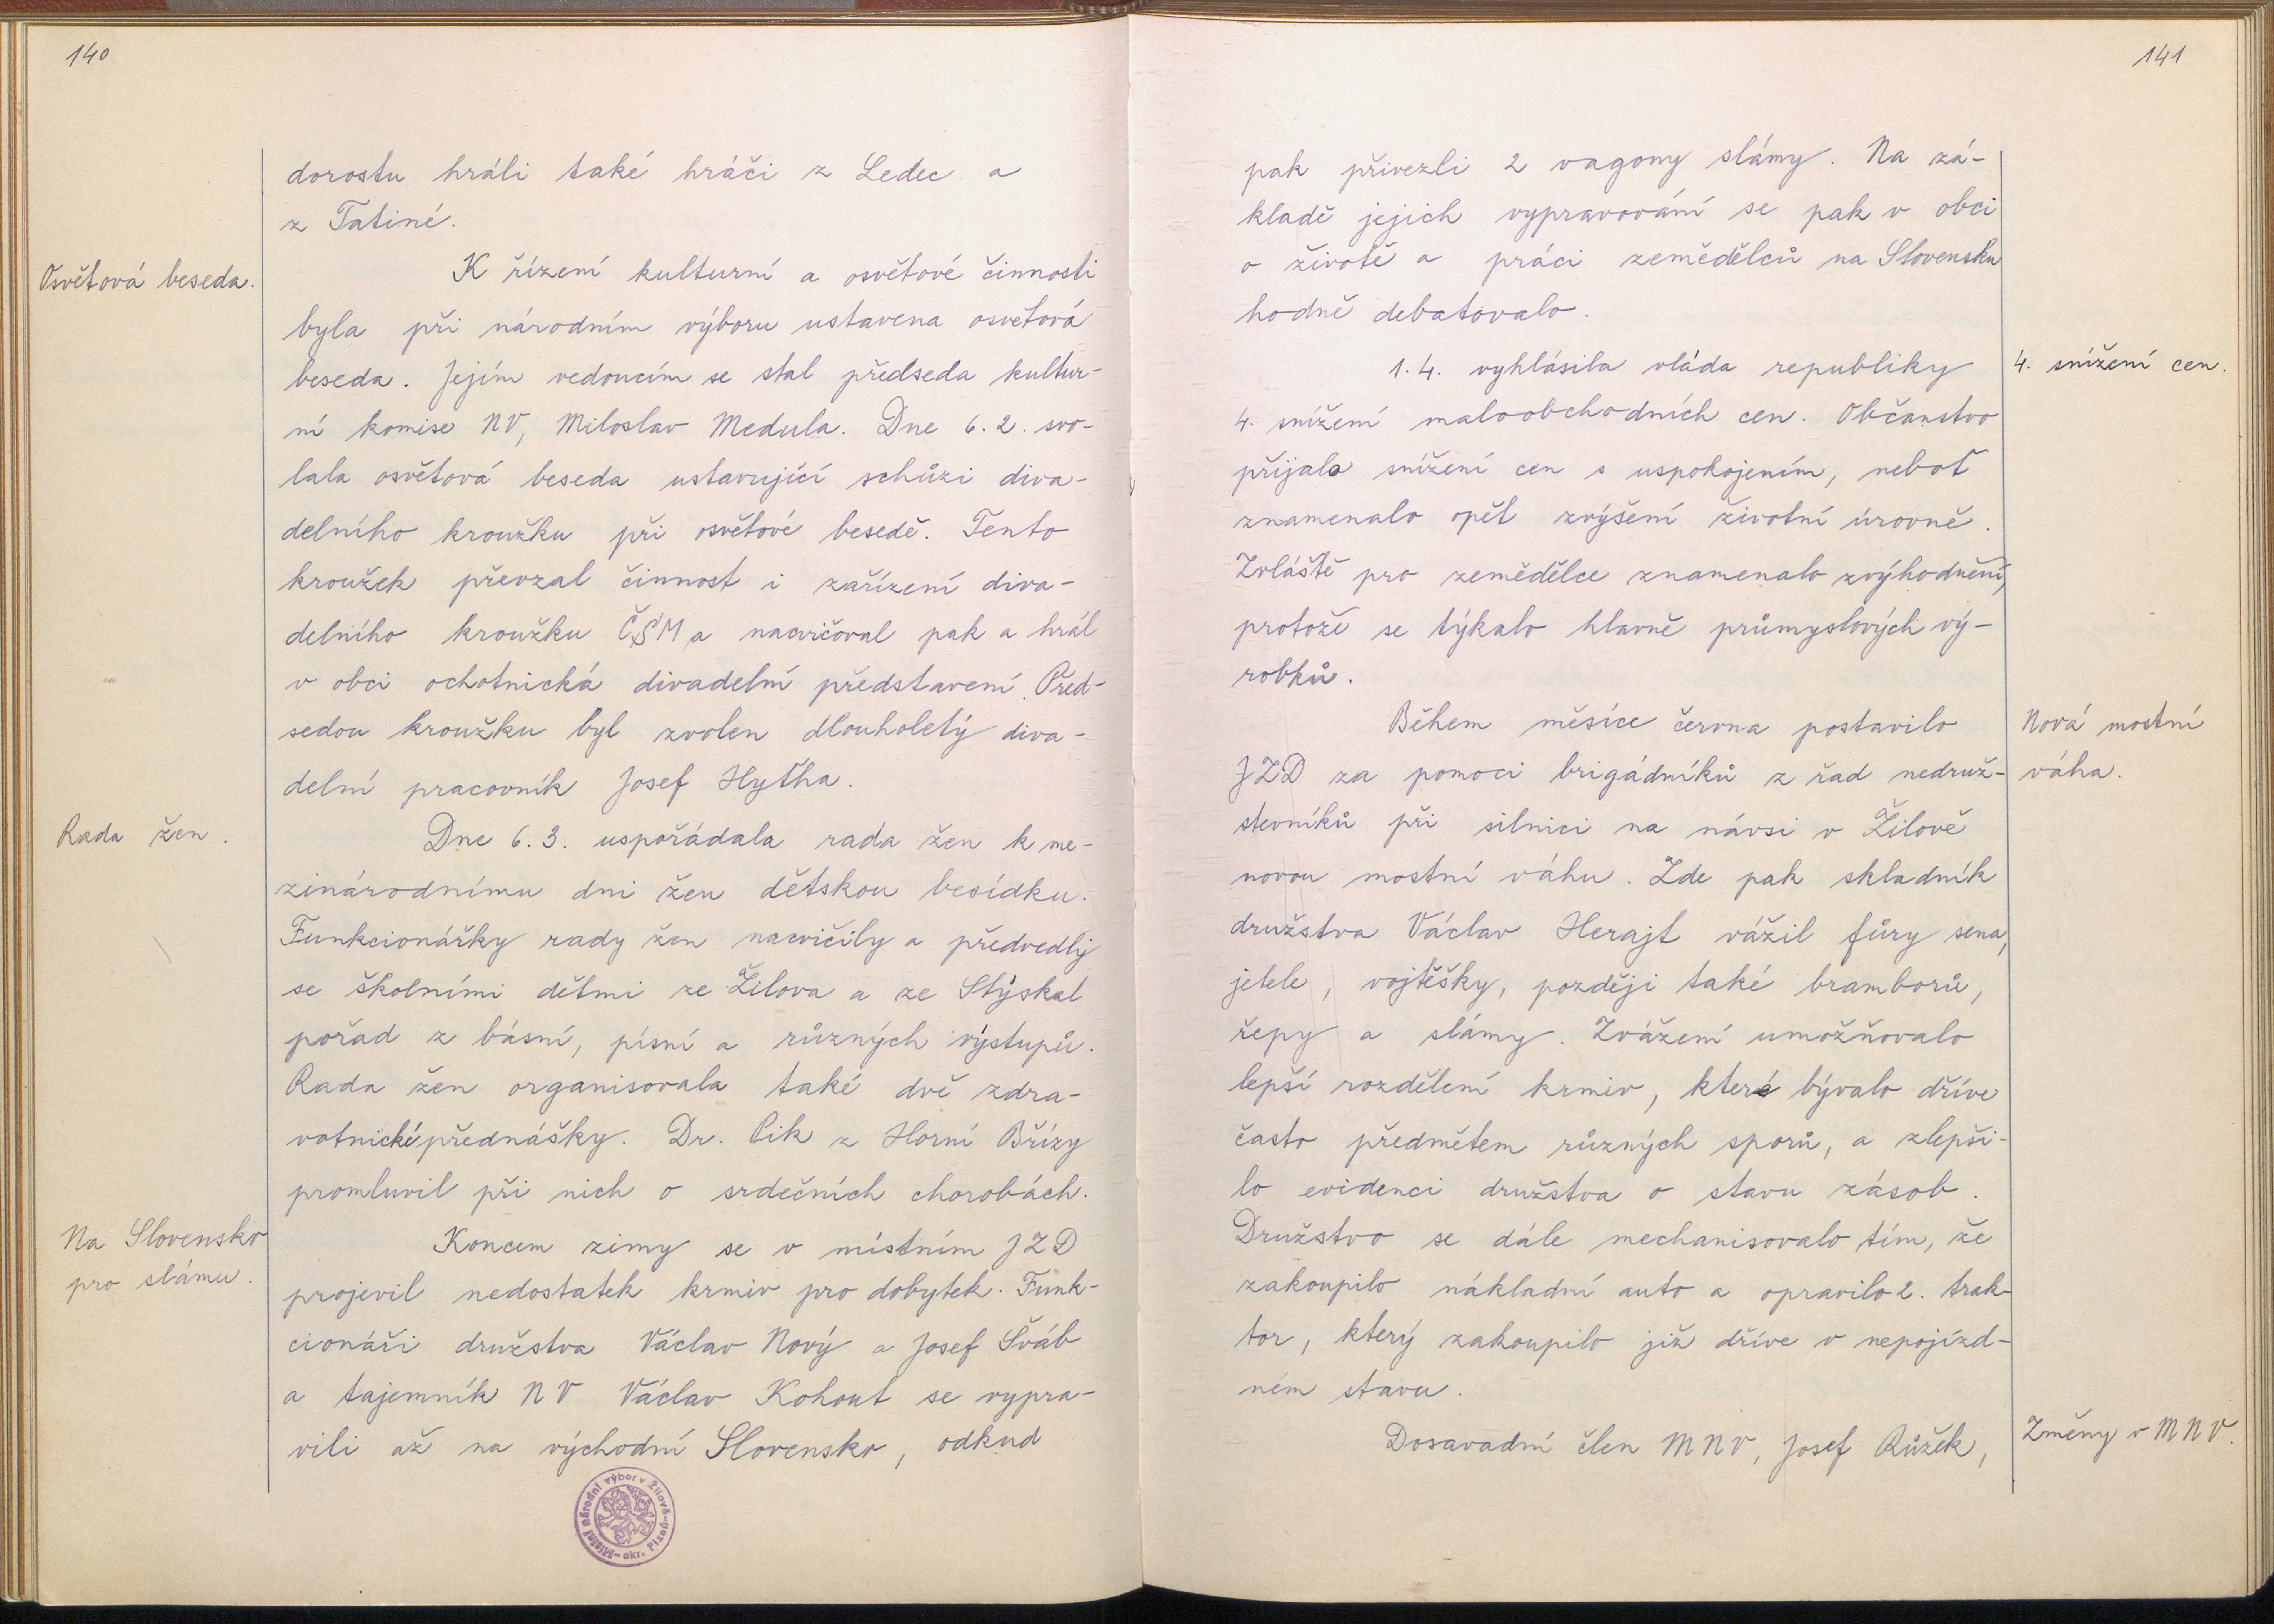 140
dorostu hráli také hráči z Ledec a
z Tatiné.
Osvětová beseda.
K řízení kulturní a osvětové činnosti
byla při národním výboru ustavena osvětová
beseda. Jejím vedoucím se stal předseda kultur-
ní komise NV, Miloslav Medula. Dne 6. 2. svo-
lala osvětová beseda ustavující schůzi diva-
delního kroužku při osvětové besedě. Tento
kroužek převzal činnost i zařízení diva-
delního kroužku ČSM a nacvičoval pak a hrál
v obci ochotnická divadelní představení. Před-
sedou kroužku byl zvolen dlouholetý diva-
delní pracovník Josef Hyťha.
Rada žen.
Dne 6. 3. uspořádala rada žen k me-
zinárodnímu dni žen dětskou besídku.
Funkcionářky rady žen nacvičily a předvedly
se školními dětmi ze Žilova a ze Stýskal
pořad z básní, písní a různých výstupů.
Rada žen organisovala také dvě zdra-
votnické přednášky. Dr. Pik z Horní Břízy
promluvil při nich o srdečních chorobách.
Na Slovensko
pro slámu.
Koncem zimy se v místním JZD
projevil nedostatek krmiv pro dobytek. Funk-
cionáři družstva Václav Nový a Josef Šváb
a tajemník NV Václav Kohout se vypra-
vili až na východní Slovensko, odkud
Místní národní výbor v Žilově - okr. Plzeň -
141
pak přivezli 2 vagony slámy. Na zá-
kladě jejich vypravování se pak v obci
o životě a práci zemědělců na Slovensku
hodně debatovalo.
4. snížení cen.
1. 4. vyhlásila vláda republiky
4. snížení maloobchodních cen. Občanstvo
přijalo snížení cen s uspokojením, neboť
znamenalo opět zvýšení životní úrovně.
Zvláště pro zemědělce znamenalo zvýhodnění,
protože se týkalo hlavně průmyslových vý-
robků.
Nová mostní
váha.
Během měsíce června postavilo
JZD za pomoci brigádníků z řad nedruž-
stevníků při silnici na návsi v Žilově
novou mostní váhu. Zde pak skladník
družstva Václav Herajt vážil fůry sena,
jetele, vojtěšky, později také bramborů,
řepy a slámy. Zvážení umožňovalo
lepší rozdělení krmiv, které bývalo dříve
často předmětem různých sporů, a zlepši-
lo evidenci družstva o stavu zásob.
Družstvo se dále mechanisovalo tím, že
zakoupilo nákladní auto a opravilo 2. trak-
tor, který zakoupilo již dříve v nepojízd-
ném stavu.
Změny v MNV.
Dosavadní člen MNV, Josef Růžek,